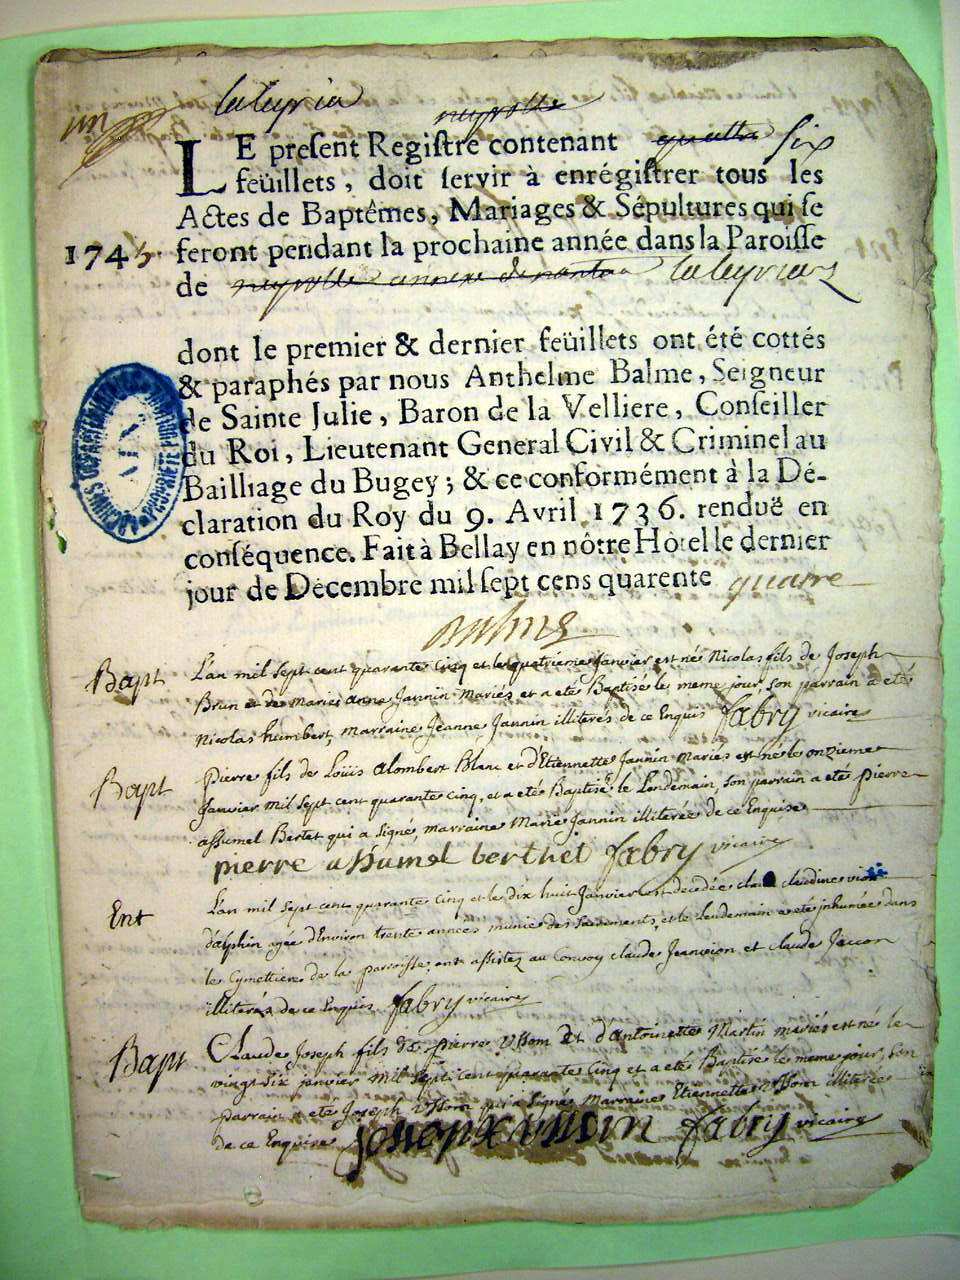 un
laleyria
neyrolle
LE present Registre contenant quatre six
feüillets, doit servir à enrégistrer tous les
Actes de Baptêmes, Mariages & Sépultures qui se
1745. feront pendant la prochaine année dans la Paroisse
de neyrolle annexe de nantua laleyriaz
dont le premier & dernier feüillets ont été cottés
& paraphés par nous Anthelme Balme, Seigneur
de Sainte Julie, Baron de la Velliere, Conseiller
du Roi, Lieutenant General Civil & Criminel au
Bailliage du Bugey; & ce conformément à la Dé-
claration du Roy du 9. Avril 1736. renduë en
conséquence. Fait à Bellay en nôtre Hôtel le dernier
jour de Décembre mil sept cens quarente quatre
ARCHIVES DEPARTEMENTALES PROPRIETE PUBLIQUE
AIN
Balme
Bapt L'an mil sept cent quarante cinq et le quatrieme Janvier est né Nicolas fils de Joseph
Brun et de Marie Anne Jannin Mariés et a eté Baptisé le meme jour, son parrain a eté
Nicolas humbert, marraine Jeanne Jannin illiterés de ce Enquis fabry vicaire
Bapt Pierre fils de Loüis alombert Blanc et d'Etiennette Jannin Mariés est né le onzieme
Janvier mil sept cent quarante cinq, et a eté Baptisé le Lendemain, son parrain a eté pierre
assumel Bertet qui a signé, marraine Marie Jannin illiterée de ce Enquise
pierre assumel berthet fabry vicaire
Ent L'an mil sept cent quarante cinq et le dix huit Janvier est decedée claudine
d'alphin agée d'Environ trente années munie des sacrements, et le Lendemain a eté inhumée dans
le Cymettiere de la parroisse, ont assistez au Convoy claude Jeanvoion et claude Jaccon
illiterés de ce Enquis fabry vicaire
Bapt Claude Joseph fils de pierre Ussom Et d'Antoinette Martin mariés est né le
vingt six janvier mil sept cent quarante cinq et a eté Baptisé le meme jour, son
parrain a eté Joseph Ussom qui a signé Marraine Etiennette Ussom illiterée
de ce Enquise Joseph ussom fabry vicaire